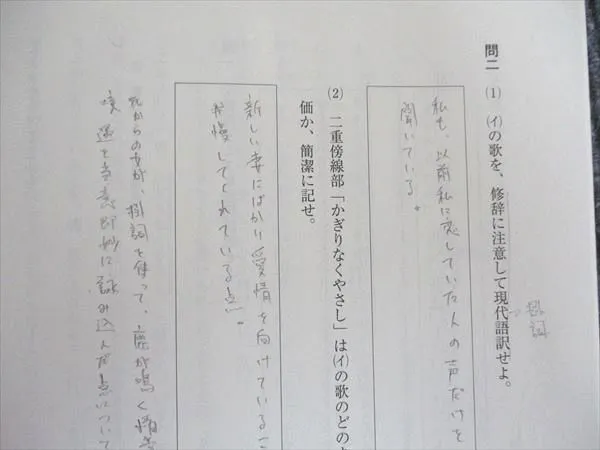 問二 (1) (イ)の歌を、修辞に注意して現代語訳せよ。
掛詞
私も、以前私に恋していた人の声だけを
聞いている。
(2) 二重傍線部「かぎりなくやさし」は(イ)の歌のどの
価か、簡潔に記せ。
新しい妻にばかり愛情を向けている
我慢してくれている点。
元からの女が、掛詞を使って、鹿が鳴く情
境遇を当意即妙に詠み込んだ点について